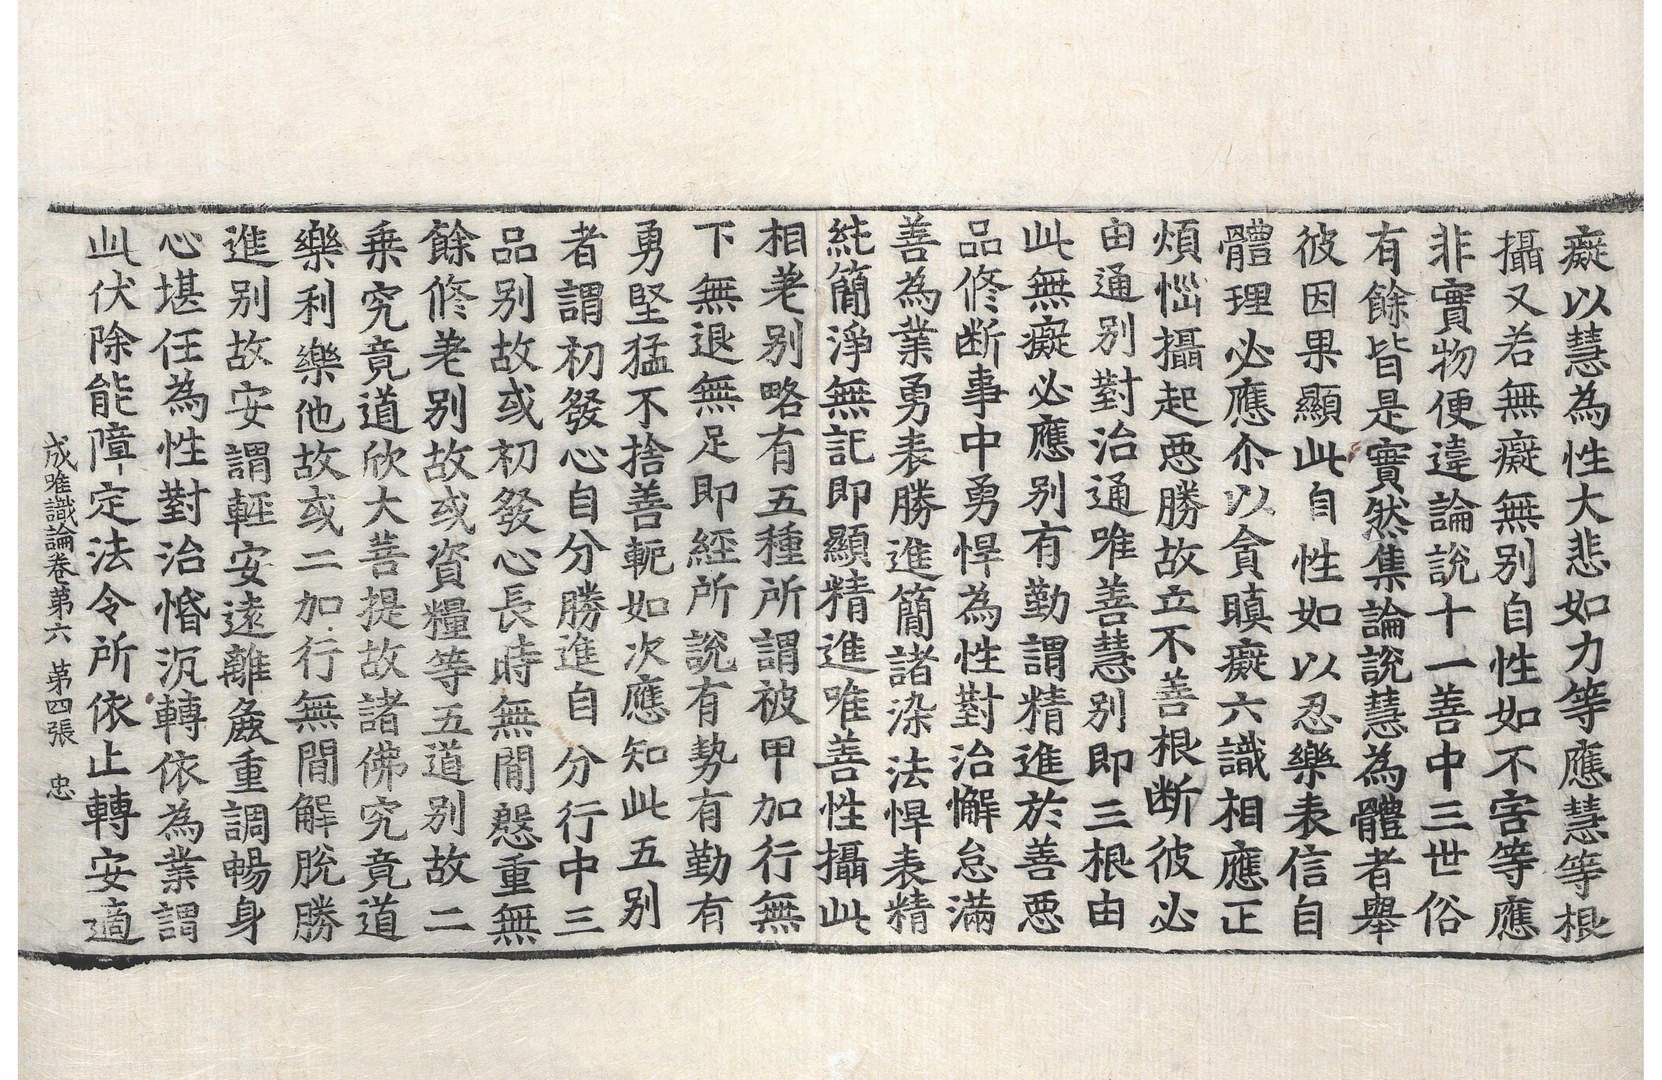 癡以慧為性大悲如力等應慧等根
攝又若無癡無別自性如不害等應
非實物便違論說十一善中三世俗
有餘皆是實然集論說慧為體者舉
彼因果顯此自性如以忍樂表信自
體理必應尒以貪瞋癡六識相應正
煩惱攝起惡勝故立不善根断彼必
由通別對治通唯善慧別即三根由
此無癡必應別有勤謂精進於善惡
品修断事中勇悍為性對治懈怠滿
善為業勇表勝進簡諸染法悍表精
純簡淨無記即顯精進唯善性攝此
相差別略有五種所謂被甲加行無
下無退無足即經所說有勢有勤有
勇堅猛不捨善軛如次應知此五別
者謂初發心自分勝進自分行中三
品別故或初發心長時無間慇重無
餘修差別故或資糧等五道別故二
乘究竟道欣大菩提故諸佛究竟道
樂利樂他故或二加行無間解脫勝
進別故安謂輕安遠離麁重調暢身
心堪任為性對治惛沉轉依為業謂
此伏除能障定法令所依止轉安適
成唯識論卷第六 第四張 忠